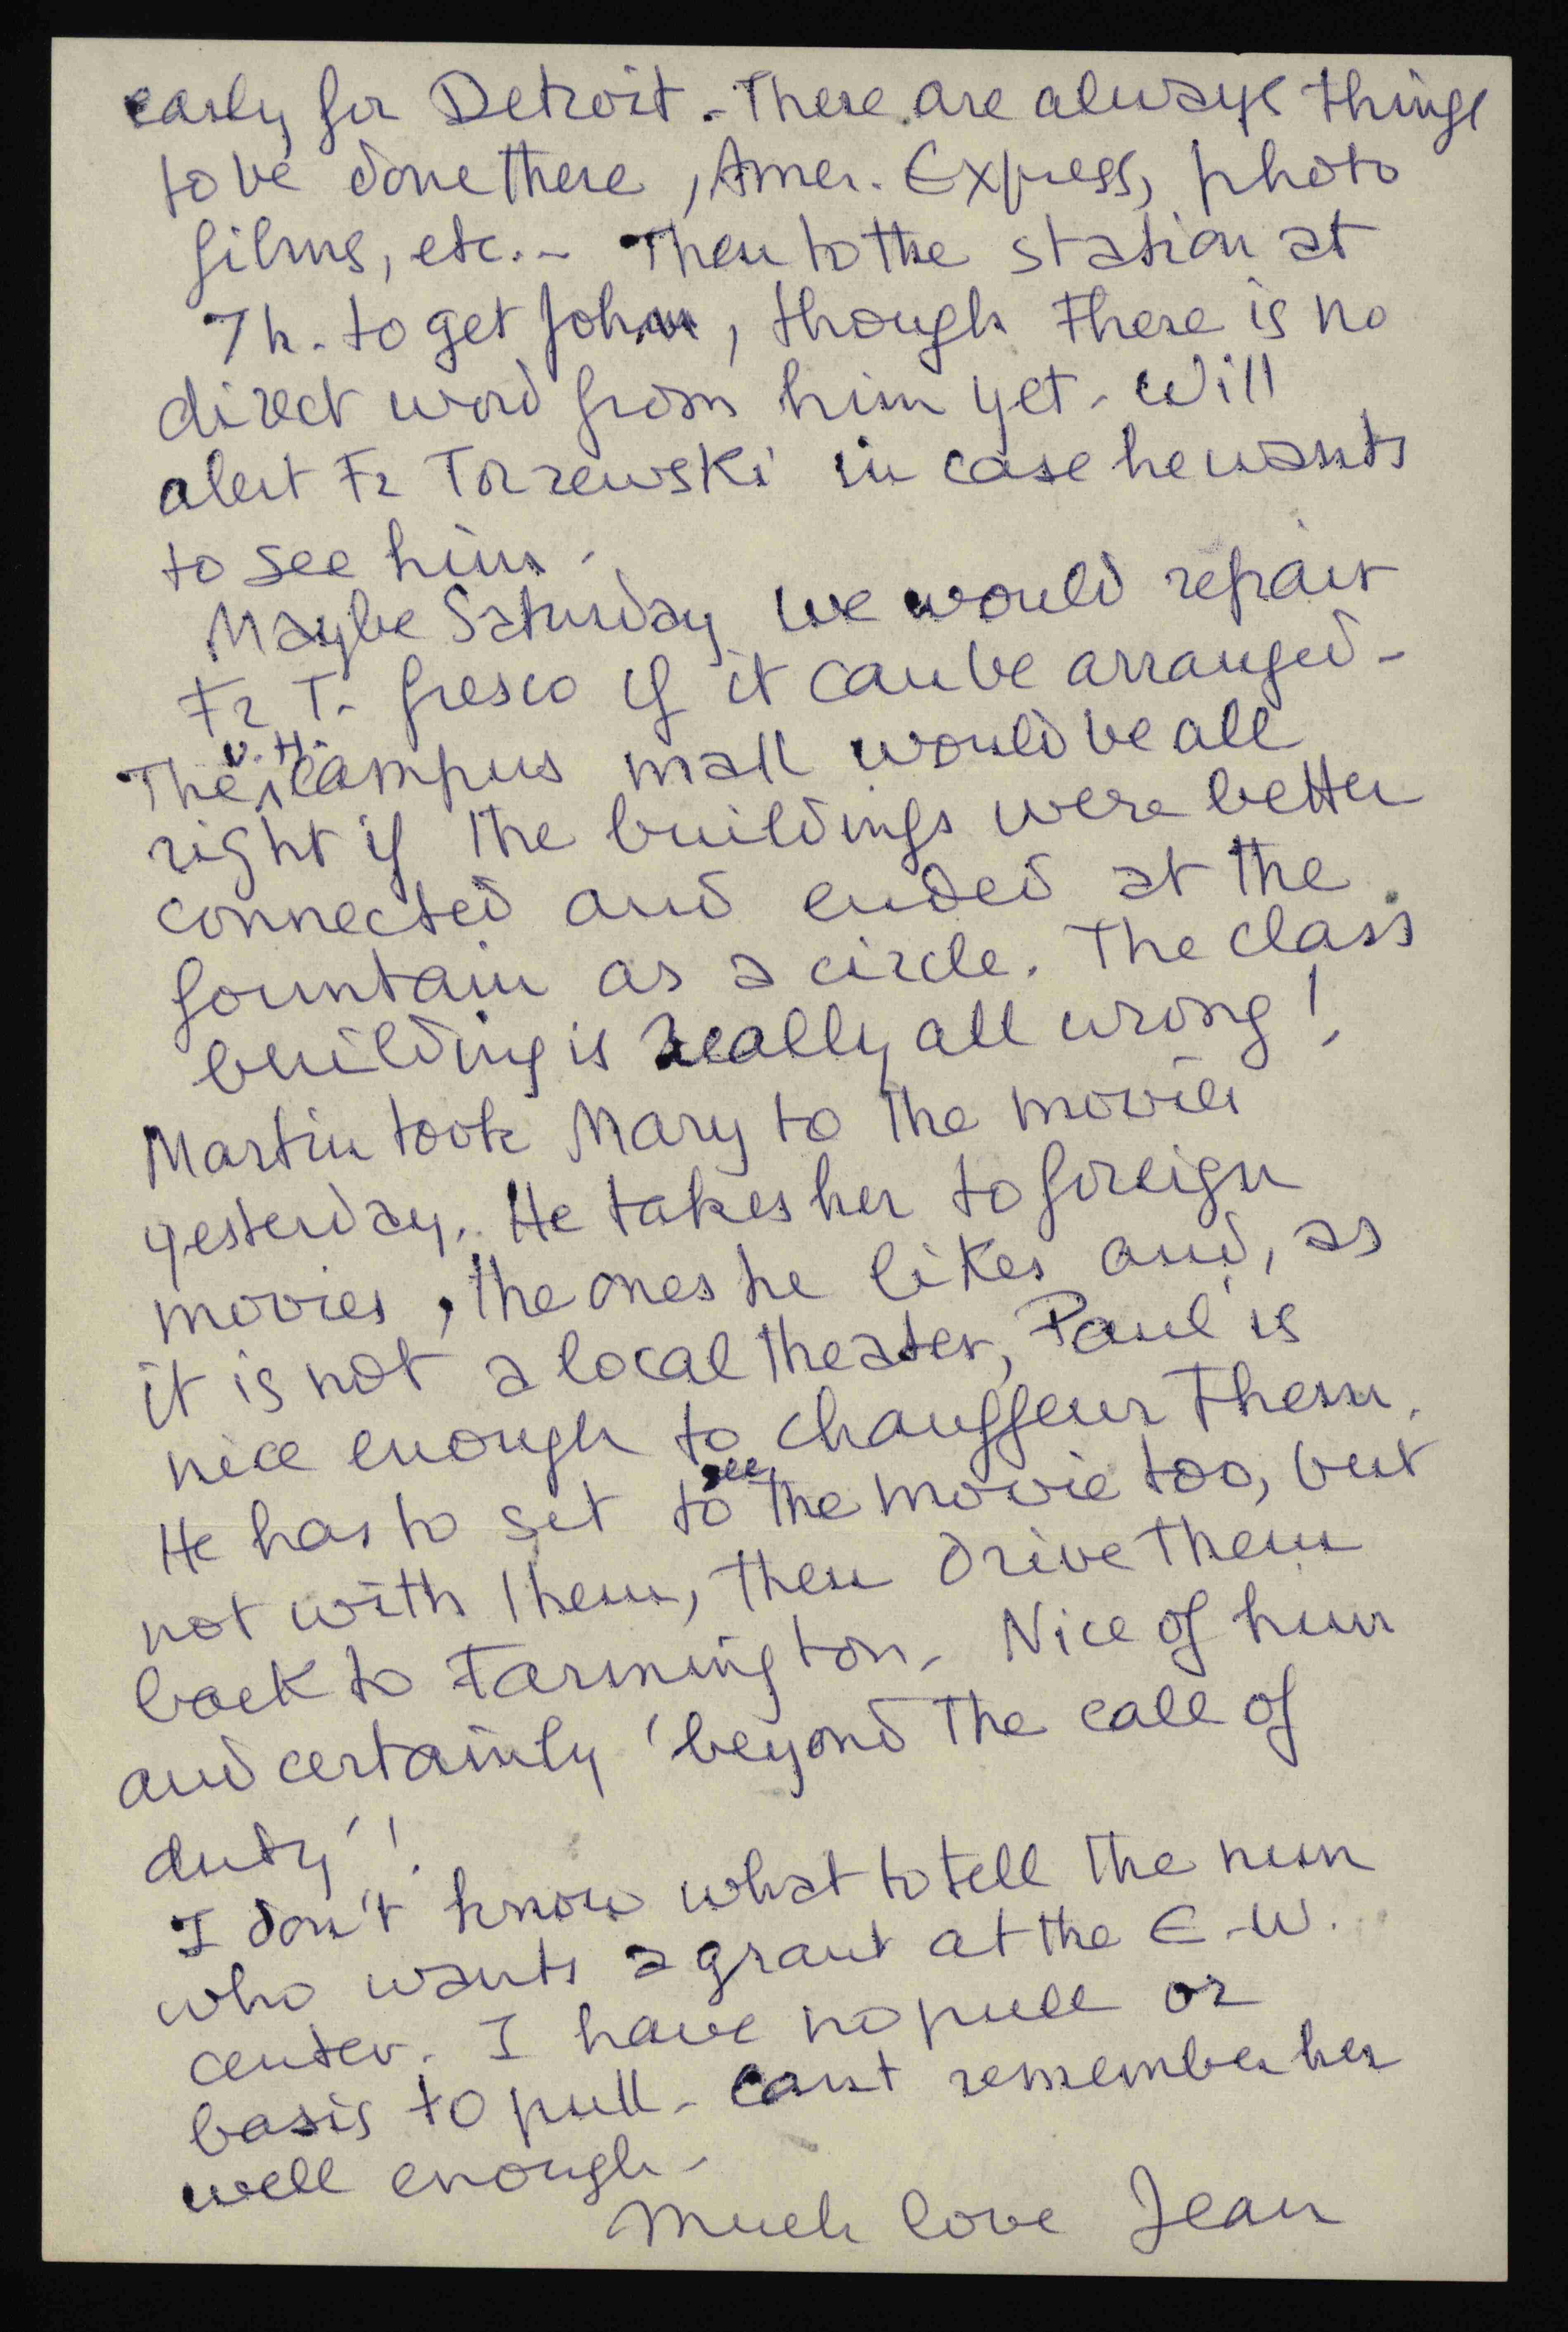 early for Detroit. - There are always things
to be done there, Amer. Express, photo
films, etc. - Then to the station at
7 h. to get John, though there is no
direct word from him yet. Will
alert Fr Torzewski in case he wants
to see him.
Maybe Saturday we would repair
Fr T. fresco if it can be arranged -
The U.H. campus mall would be all
right if the buildings were better
connected and ended at the
fountain as a circle. The class
building is really all wrong!
Martin took Mary to the movies
yesterday. He takes her to foreign
movies, the ones he likes and, as
it is not a local theater, Paul is
nice enough to chauffeur them.
He has to set to see the movie too, but
not with them, then drive them
back to Farmington. Nice of him
and certainly 'beyond the call of
duty'!
I don't know what to tell the nun
who wants a grant at the E-W.
center. I have no pull or
basis to pull - can't remember her
well enough -
Much love Jean